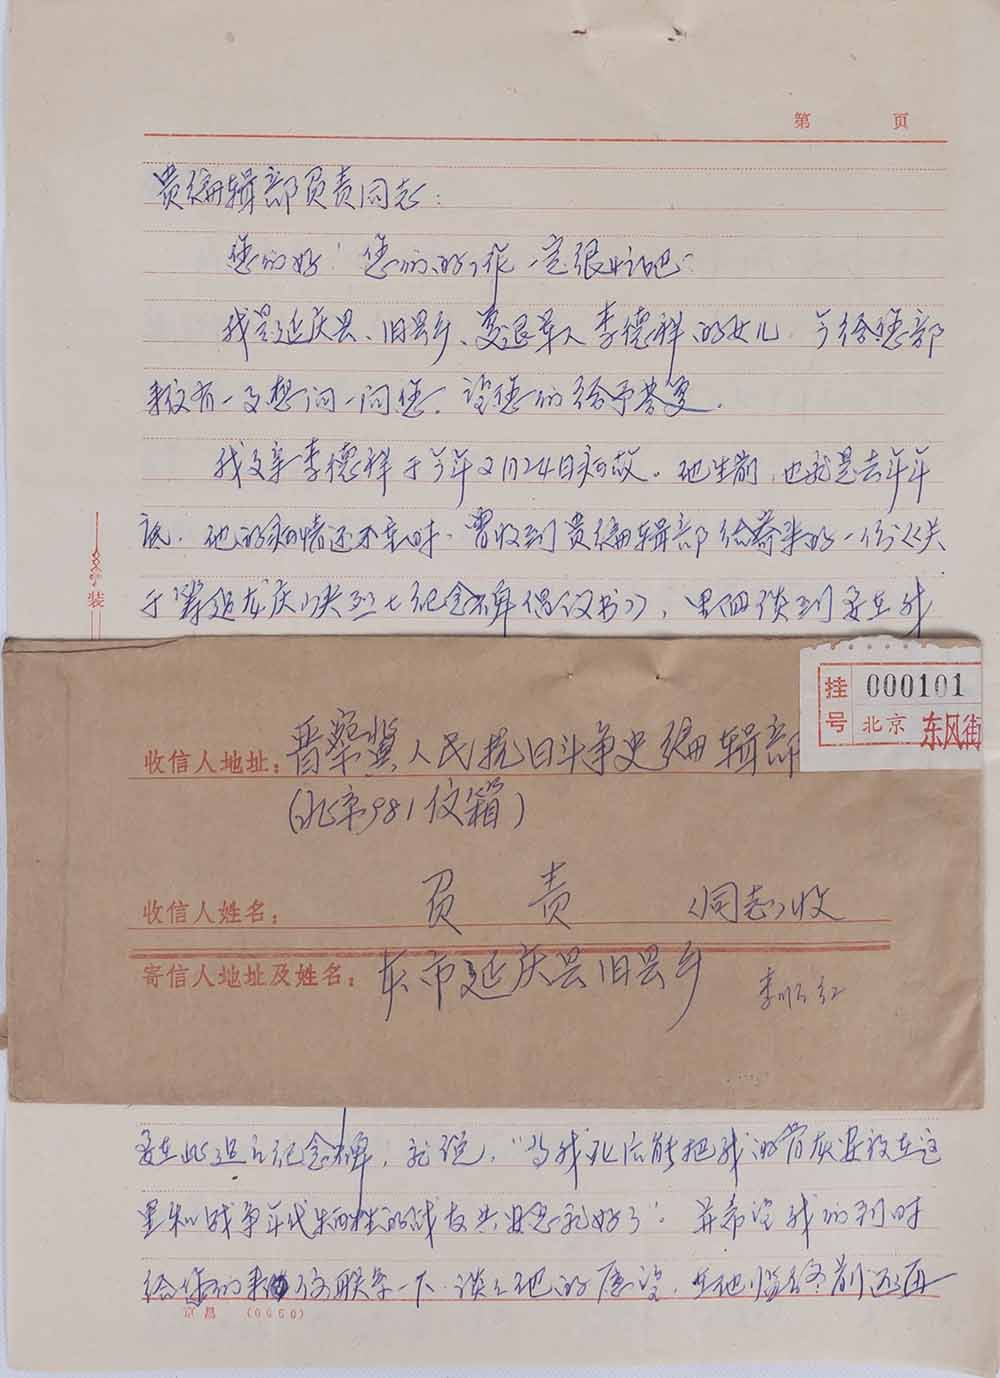 第 页
贵编辑部负责同志：
您们好！您们的工作一定很忙吧：
我是延庆县、旧县乡、复退军人李德祥的女儿 今给您部
来信有一事想问一问您，望您们给予答复．
我父亲李德祥于今年2月24日病故。他生前，也就是去年年
底．他的病情还不重时，曾收到贵编辑部给寄来的一份《关
于筹建龙庆峡烈士纪念碑倡议书》，里面谈到要在我
装
挂号 000101
北京 东风街
收信人地址：晋察冀人民抗日斗争史编辑部
（北京981信箱）
收信人姓名： 负 责 （同志）收
寄信人地址及姓名： 本市延庆县旧县乡 李顺红
要在此建立纪念碑，就说，“当我死后能把我的骨灰安放在这
里和战争年代牺牲的战友共安息就好了”．并希望我们到时
给您们来信联系一下．谈谈他的愿望，在他临终前还再
京昌 (6660)